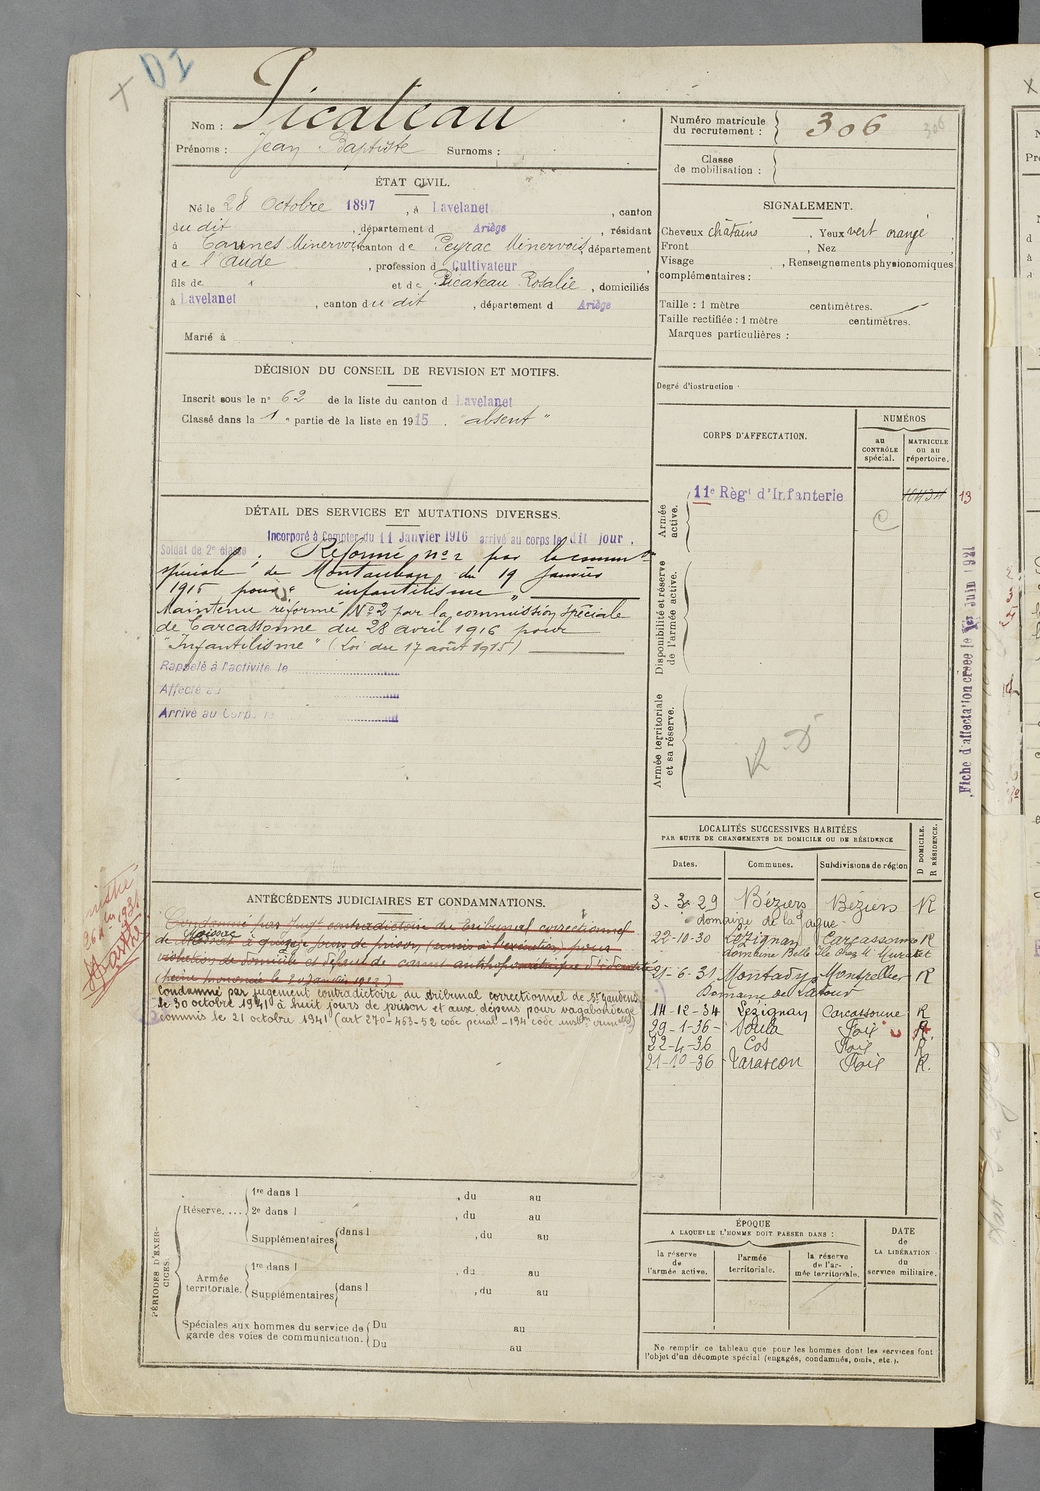 DI
Nom : Picateau
Prénoms : Jean Baptiste Surnoms :
ÉTAT CIVIL.
Né le 28 Octobre 1897, à Lavelanet, canton
du dit, département d Ariège, résidant
à Caunes Minervois canton de Peyrac Minervois, département
de l'Aude, profession d Cultivateur
fils de et de Picateau Rosalie, domiciliés
à Lavelanet, canton du dit, département d Ariège
Marié à
DÉCISION DU CONSEIL DE REVISION ET MOTIFS.
Inscrit sous le n° 62 de la liste du canton d Lavelanet
Classé dans la 1e partie de la liste en 1915. "absent"
DÉTAIL DES SERVICES ET MUTATIONS DIVERSES.
Incorporé à Compter du 11 Janvier 1916 arrivé au corps le dit jour.
Soldat de 2e classe. Réformé n°2 par la common
spéciale de Montauban du 19 Janvier
1915 pour "infantilisme"
Maintenu réformé N°2 par la commission spéciale
de Carcassonne du 28 avril 1916 pour
"Infantilisme" (Loi du 17 août 1915)
Rappelé à l'activité le
Affecté au
Arrivé au Corps le
ANTÉCÉDENTS JUDICIAIRES ET CONDAMNATIONS.
Condamné par Jugt contradictoire du Tribunal correctionnel
de Moissac à quinze jours de prison pour
violation de domicile et défaut de carnet anthropométrique d'identité
Condamné par jugement contradictoire, du tribunal correctionnel de St Gaudens
le 30 octobre 1941 à huit jours de prison et aux dépens pour vagabondage
commis le 21 octobre 1941 (art 270-463-52 code pénal - 194 code inston crimelle)
PÉRIODES D'EXERCICES.
Réserve....
1re dans l , du au
2e dans l , du au
Supplémentaires dans l , du au
Armée territoriale.
1re dans l , du au
Supplémentaires dans l , du au
Spéciales aux hommes du service de garde des voies de communication.
Du au
Du au
Numéro matricule du recrutement : 306
306
Classe de mobilisation :
SIGNALEMENT.
Cheveux châtains . Yeux vert orangé
Front , Nez
Visage , Renseignements physionomiques
complémentaires :
Taille : 1 mètre centimètres.
Taille rectifiée : 1 mètre centimètres.
Marques particulières :
Degré d'instruction
CORPS D'AFFECTATION.
NUMÉROS
au CONTRÔLE spécial.
MATRICULE ou au répertoire.
Armée active.
11e Régt d'Infanterie
13
C
Disponibilité et réserve de l'armée active.
Armée territoriale et sa réserve.
R D
Fiche d'affectation créée le 1er Juin 1921
LOCALITÉS SUCCESSIVES HABITÉES
PAR SUITE DE CHANGEMENTS DE DOMICILE OU DE RÉSIDENCE
D DOMICILE. R RÉSIDENCE.
Dates. Communes. Subdivisions de région
3-3-29 Béziers Béziers R
domaine de la
22-10-30 Lézignan Carcassonne R
domaine Belle Ile chez Mr
21-6-31 Montady Montpellier R
Domaine de Latour
14-12-34 Lézignan Carcassonne R
29-1-36 Foix R
22-4-36 Cos Foix R
21-10-36 Tarascon Foix R.
ÉPOQUE
A LAQUELLE L'HOMME DOIT PASSER DANS :
DATE de LA LIBÉRATION du service militaire.
la réserve de l'armée active.
l'armée territoriale.
la réserve de l'armée territoriale.
Ne remplir ce tableau que pour les hommes dont les services font
l'objet d'un décompte spécial (engagés, condamnés, omis, etc.).